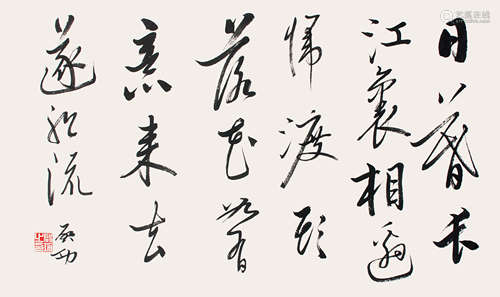 日暮长
江裏相邀
归渡頭
落花如有
意来去
逐船流
启功